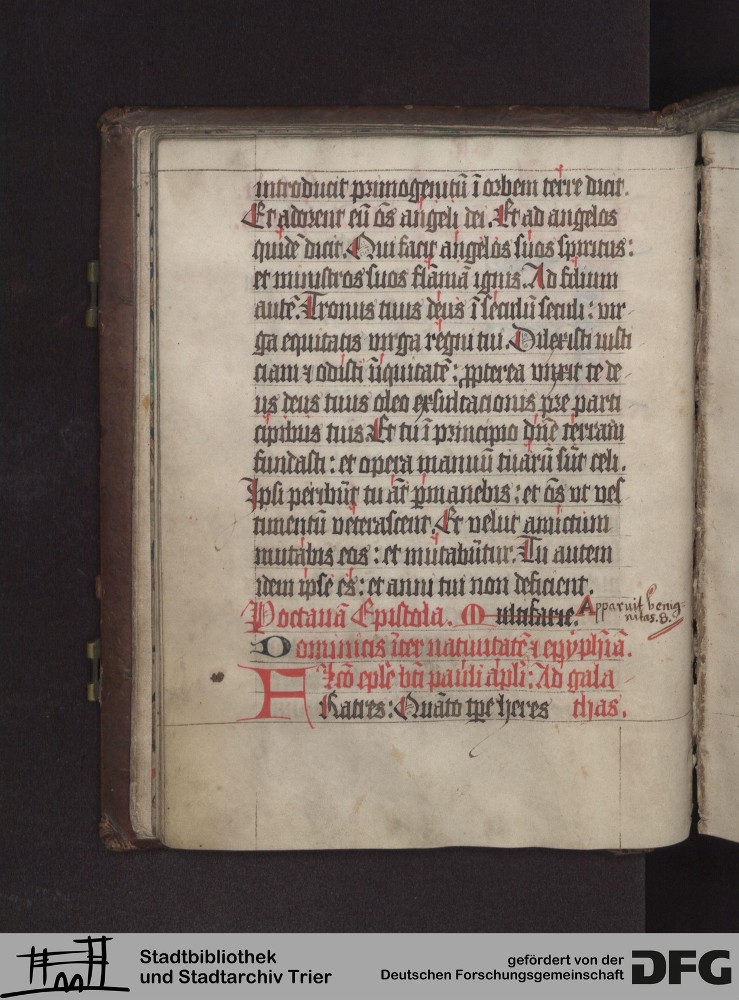 introducit primogenitū ī orbem terre dicit.
Et adorent eū oēs angeli dei. Et ad angelos
quidē dicit. Qui facit angelos suos spiritus:
et ministros suos flāmā ignis. Ad filium
autē. Tronus tuus deus ī seculū seculi: vir-
ga equitatis virga regni tui. Dilexisti iusti
ciam ⁊ odisti īiquitatē: ꝓpterea vnxit te de-
us deus tuus oleo exsultacionis pre parti
cipibus tuis. Et tu ī principio dn̄e terram
fundasti: et opera manuū tuarū sūt celi.
Ipsi peribūt tu āt ꝑmanebis: et oēs vt ves
timentū veterascent. Et velut amictum
mutabis eos: et mutabūtur. Tu autem
idem ipse es: et anni tui non deficient.
P octauā Epistola. Multifarie. Apparuit benig-
nitas. 8.
Dominicis īter natiuitatē ⁊ epyphīā.
Lc̄o ep̄le bt̄i pauli apl̄i: Ad gala
FRatres: Quāto tp̄e heres thas.
Stadtbibliothek
und Stadtarchiv Trier
gefördert von der
Deutschen Forschungsgemeinschaft
DFG